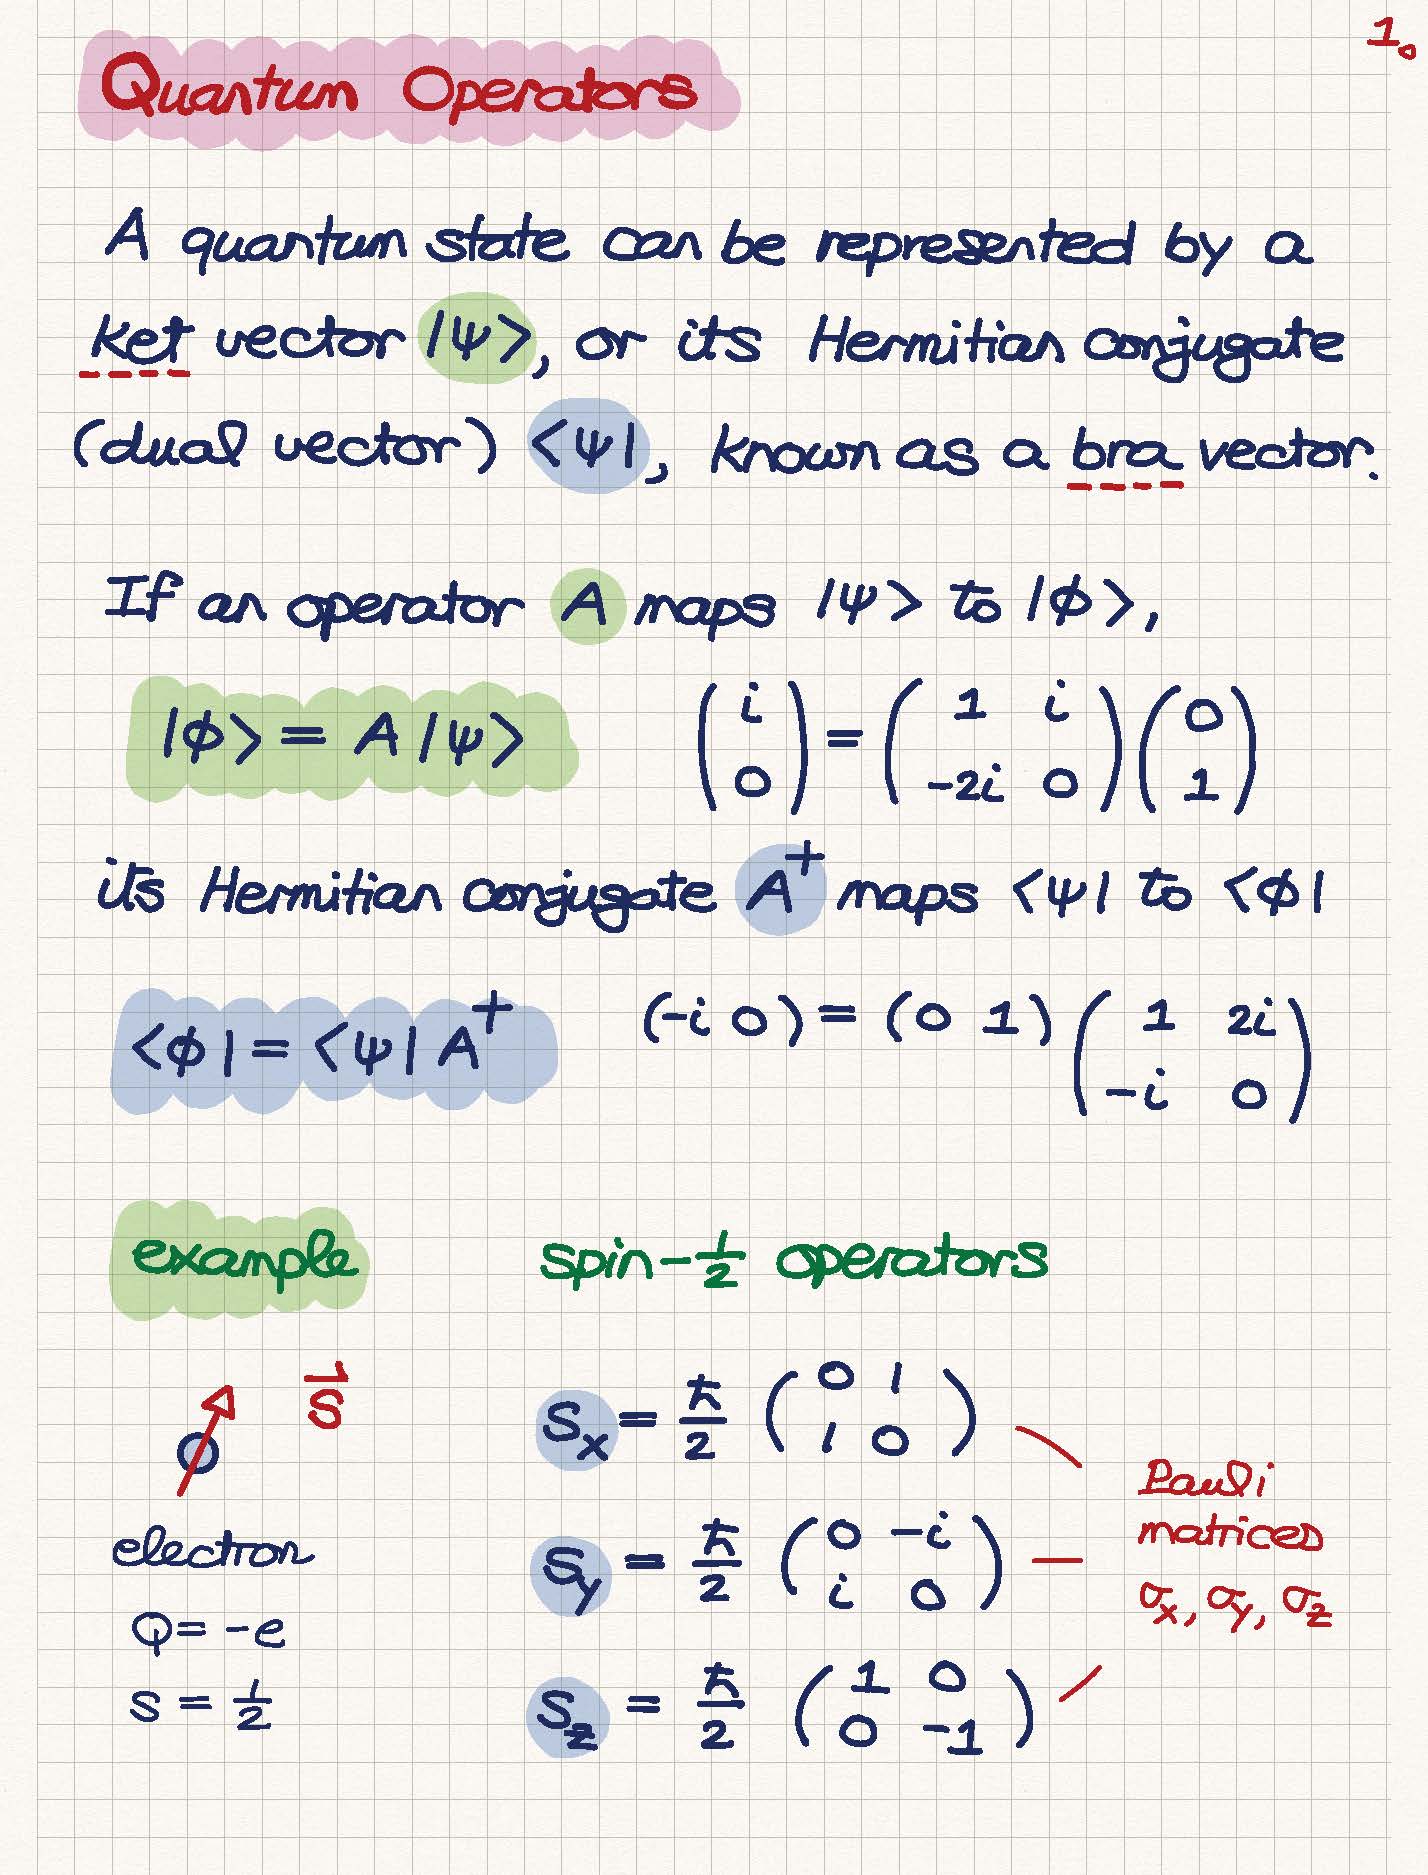 1.
Quantum Operators
A quantum state can be represented by a
ket vector |ψ>, or its Hermitian conjugate
(dual vector) <ψ|, known as a bra vector.
If an operator A maps |ψ> to |ϕ>,
|ϕ> = A |ψ>
(i 0) = (1 i -2i 0) (0 1)
its Hermitian conjugate A⁺ maps <ψ| to <ϕ|
<ϕ| = <ψ| A⁺
(-i 0) = (0 1) (1 2i -i 0)
example
spin-1/2 operators
S⃗
electron
Q = -e
s = 1/2
Sx = ħ/2 (0 1 1 0)
Sy = ħ/2 (0 -i i 0)
Sz = ħ/2 (1 0 0 -1)
Pauli
matrices
σx, σy, σz